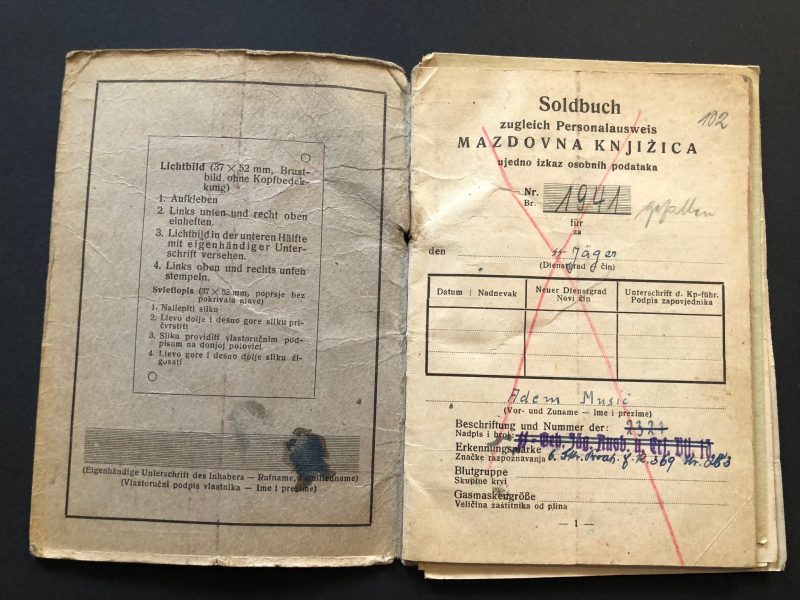 Lichtbild (37 × 52 mm, Brust-
bild ohne Kopfbedek-
kung)
1. Aufkleben
2. Links unten und recht oben
einheften.
3. Lichtbild in der unteren Hälfte
mit eigenhändiger Unter-
schrift versehen.
4. Links oben und rechts unten
stempeln.
Svietlopis (37 × 52 mm, poprsje bez
pokrivala glave)
1. Naliepiti sliku
2. Lievo dolje i desno gore sliku pri-
čvrstiti
3. Sliku providiti vlastoručnim pod-
pisom na donjoj polovici
4. Lievo gore i desno dolje sliku ži-
gosati
(Eigenhändige Unterschrift des Inhabers — Rufname, Familienname)
(Vlastoručni podpis vlastnika — Ime i prezime)
102
Soldbuch
zugleich Personalausweis
MAZDOVNA KNJIŽICA
ujedno izkaz osobnih podataka
Nr.
Br.
1941
gefallen
für
za
den
ϟϟ Jäger
(Dienstgrad čin)
Datum | Nadnevak
Neuer Dienstgrad
Novi čin
Unterschrift d. Kp-führ.
Podpis zapovjednika
Adem Musić
(Vor- und Zuname — Ime i prezime)
Beschriftung und Nummer der: 2321
Nadpis i broj:
Erkennungsmarke
Značke razpoznavanja
369
Blutgruppe
Skupine krvi
Gasmaskengröße
Veličina zaštitnika od plina
— 1 —